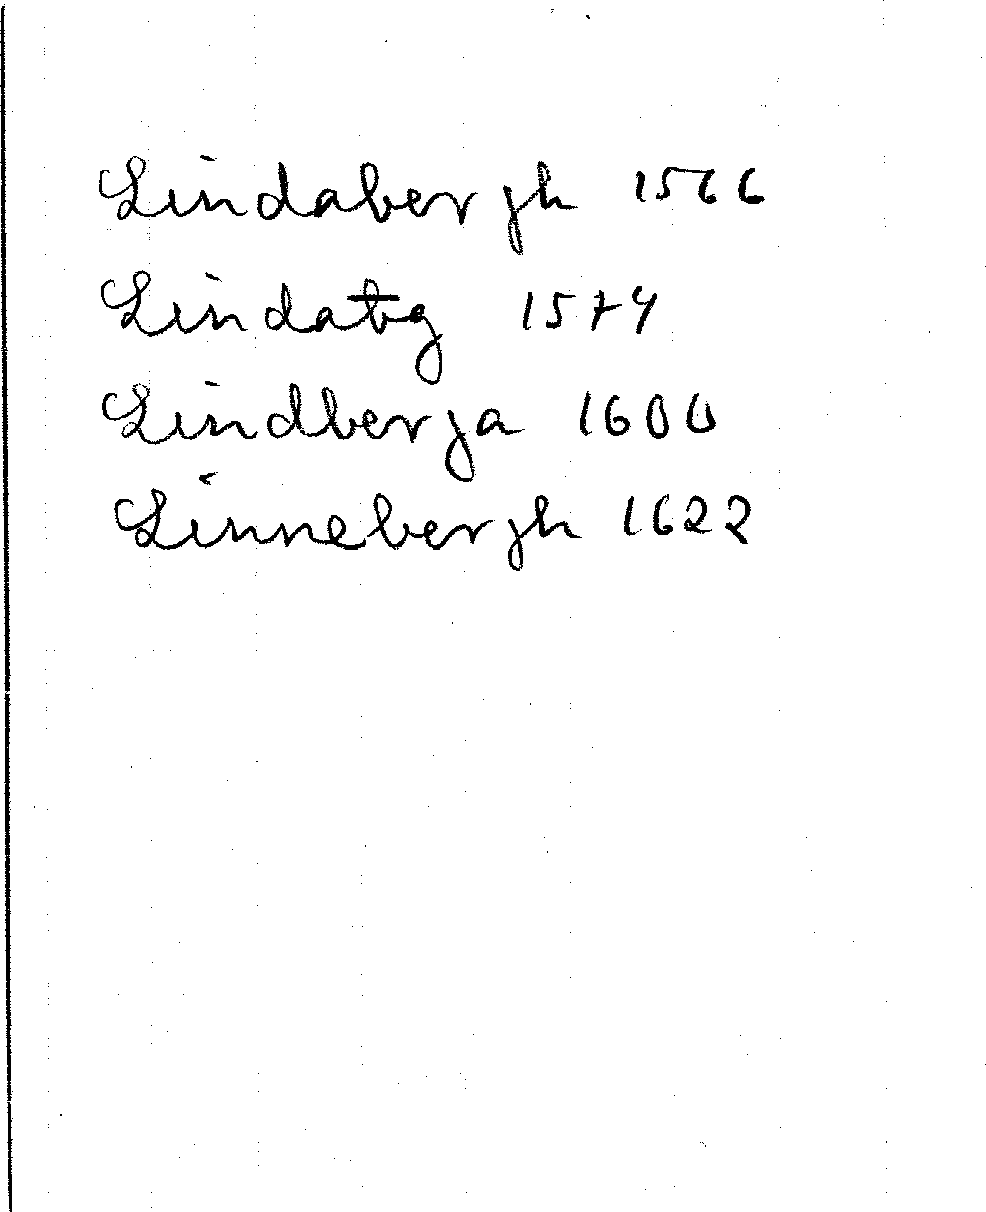 Lindabergh 1566
Lindabg 1574
Lindberga 1600
Linnebergh 1622